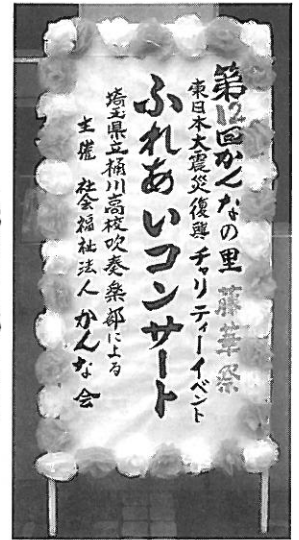 第12回かんなの里 藤華祭
東日本大震災復興チャリティーイベント
ふれあいコンサート
埼玉県立桶川高校吹奏楽部による
主催 社会福祉法人かんな会